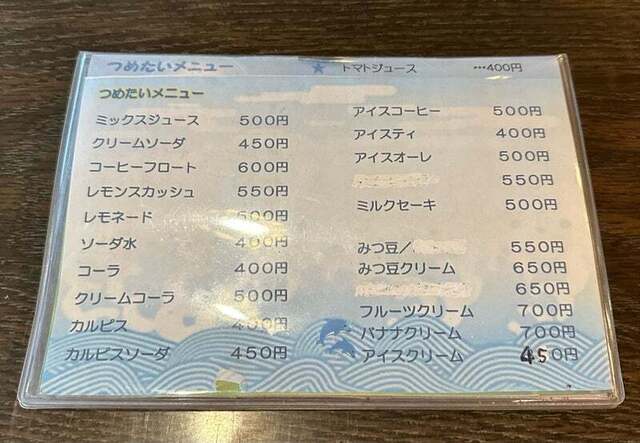 つめたいメニュー
★ トマトジュース …400円
つめたいメニュー
ミックスジュース 500円
クリームソーダ 450円
コーヒーフロート 600円
レモンスカッシュ 550円
レモネード 500円
ソーダ水 400円
コーラ 400円
クリームコーラ 500円
カルピス 450円
カルピスソーダ 450円
アイスコーヒー 500円
アイスティ 400円
アイスオーレ 500円
550円
ミルクセーキ 500円
みつ豆/ 550円
みつ豆クリーム 650円
650円
フルーツクリーム 700円
バナナクリーム 700円
アイスクリーム 450円